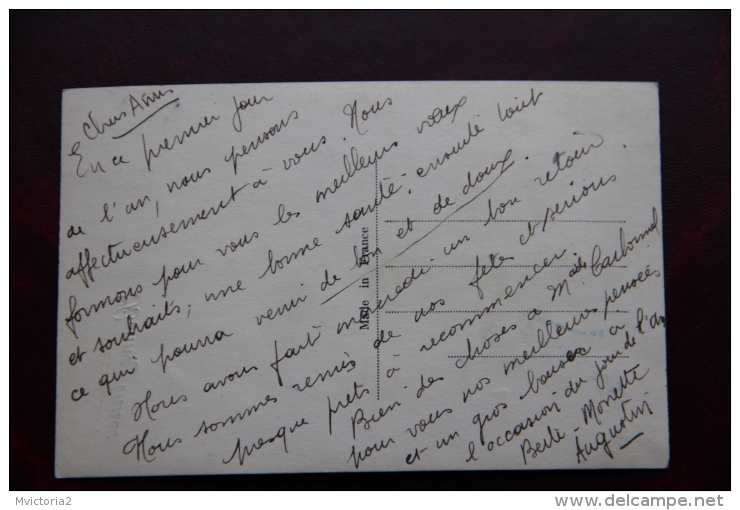 Chers Amis
En ce premier jour
de l'an, nous pensons
affectueusement à vous. Nous
formons pour vous les meilleurs vœux
et souhaits, une bonne santé, ensuite tout
ce qui pourra venir de bon et de doux.
Nous avons fait mercredi un bon retour
Nous sommes remis de nos fêtes et serions
presque prêts à recommencer.
Bien des choses à Made Carbonnel
pour vous nos meilleures pensées
et un gros baiser à
l'occasion du jour de l'An
Monette
Augustin
Made in France
Mvictoria2
delcampe.net